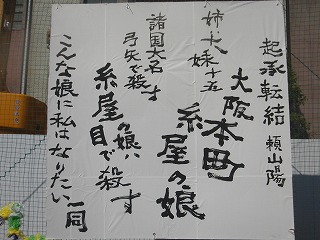 起承転結 頼山陽
大阪本町
糸屋の娘
姉十六妹十五
諸国大名
弓矢で殺す
糸屋の娘ハ
目で殺す
こんな娘に私はなりたい 一同